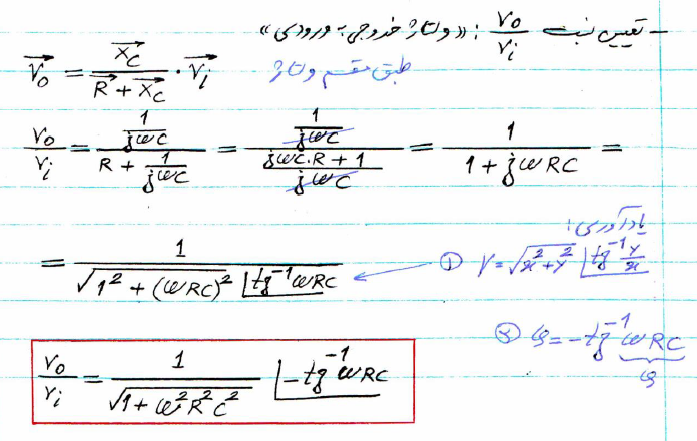 – تعیین نسبت Vo/Vi : «ولتاژ خروجی به ورودی»
Vo = Xc / (R + Xc) · Vi طبق تقسیم ولتاژ
Vo/Vi = (1/jωC) / (R + 1/jωC) = (1/jωC) / ((jωC.R + 1)/jωC) = 1 / (1 + jωRC) =
یادآوری:
= 1 / (√(1² + (ωRC)²) ∠tg⁻¹ωRC) ← ① r = √(x² + y²) ∠tg⁻¹ y/x
② φ = -tg⁻¹ωRC
φ
Vo/Vi = 1 / √(1 + ω²R²C²) ∠-tg⁻¹ωRC